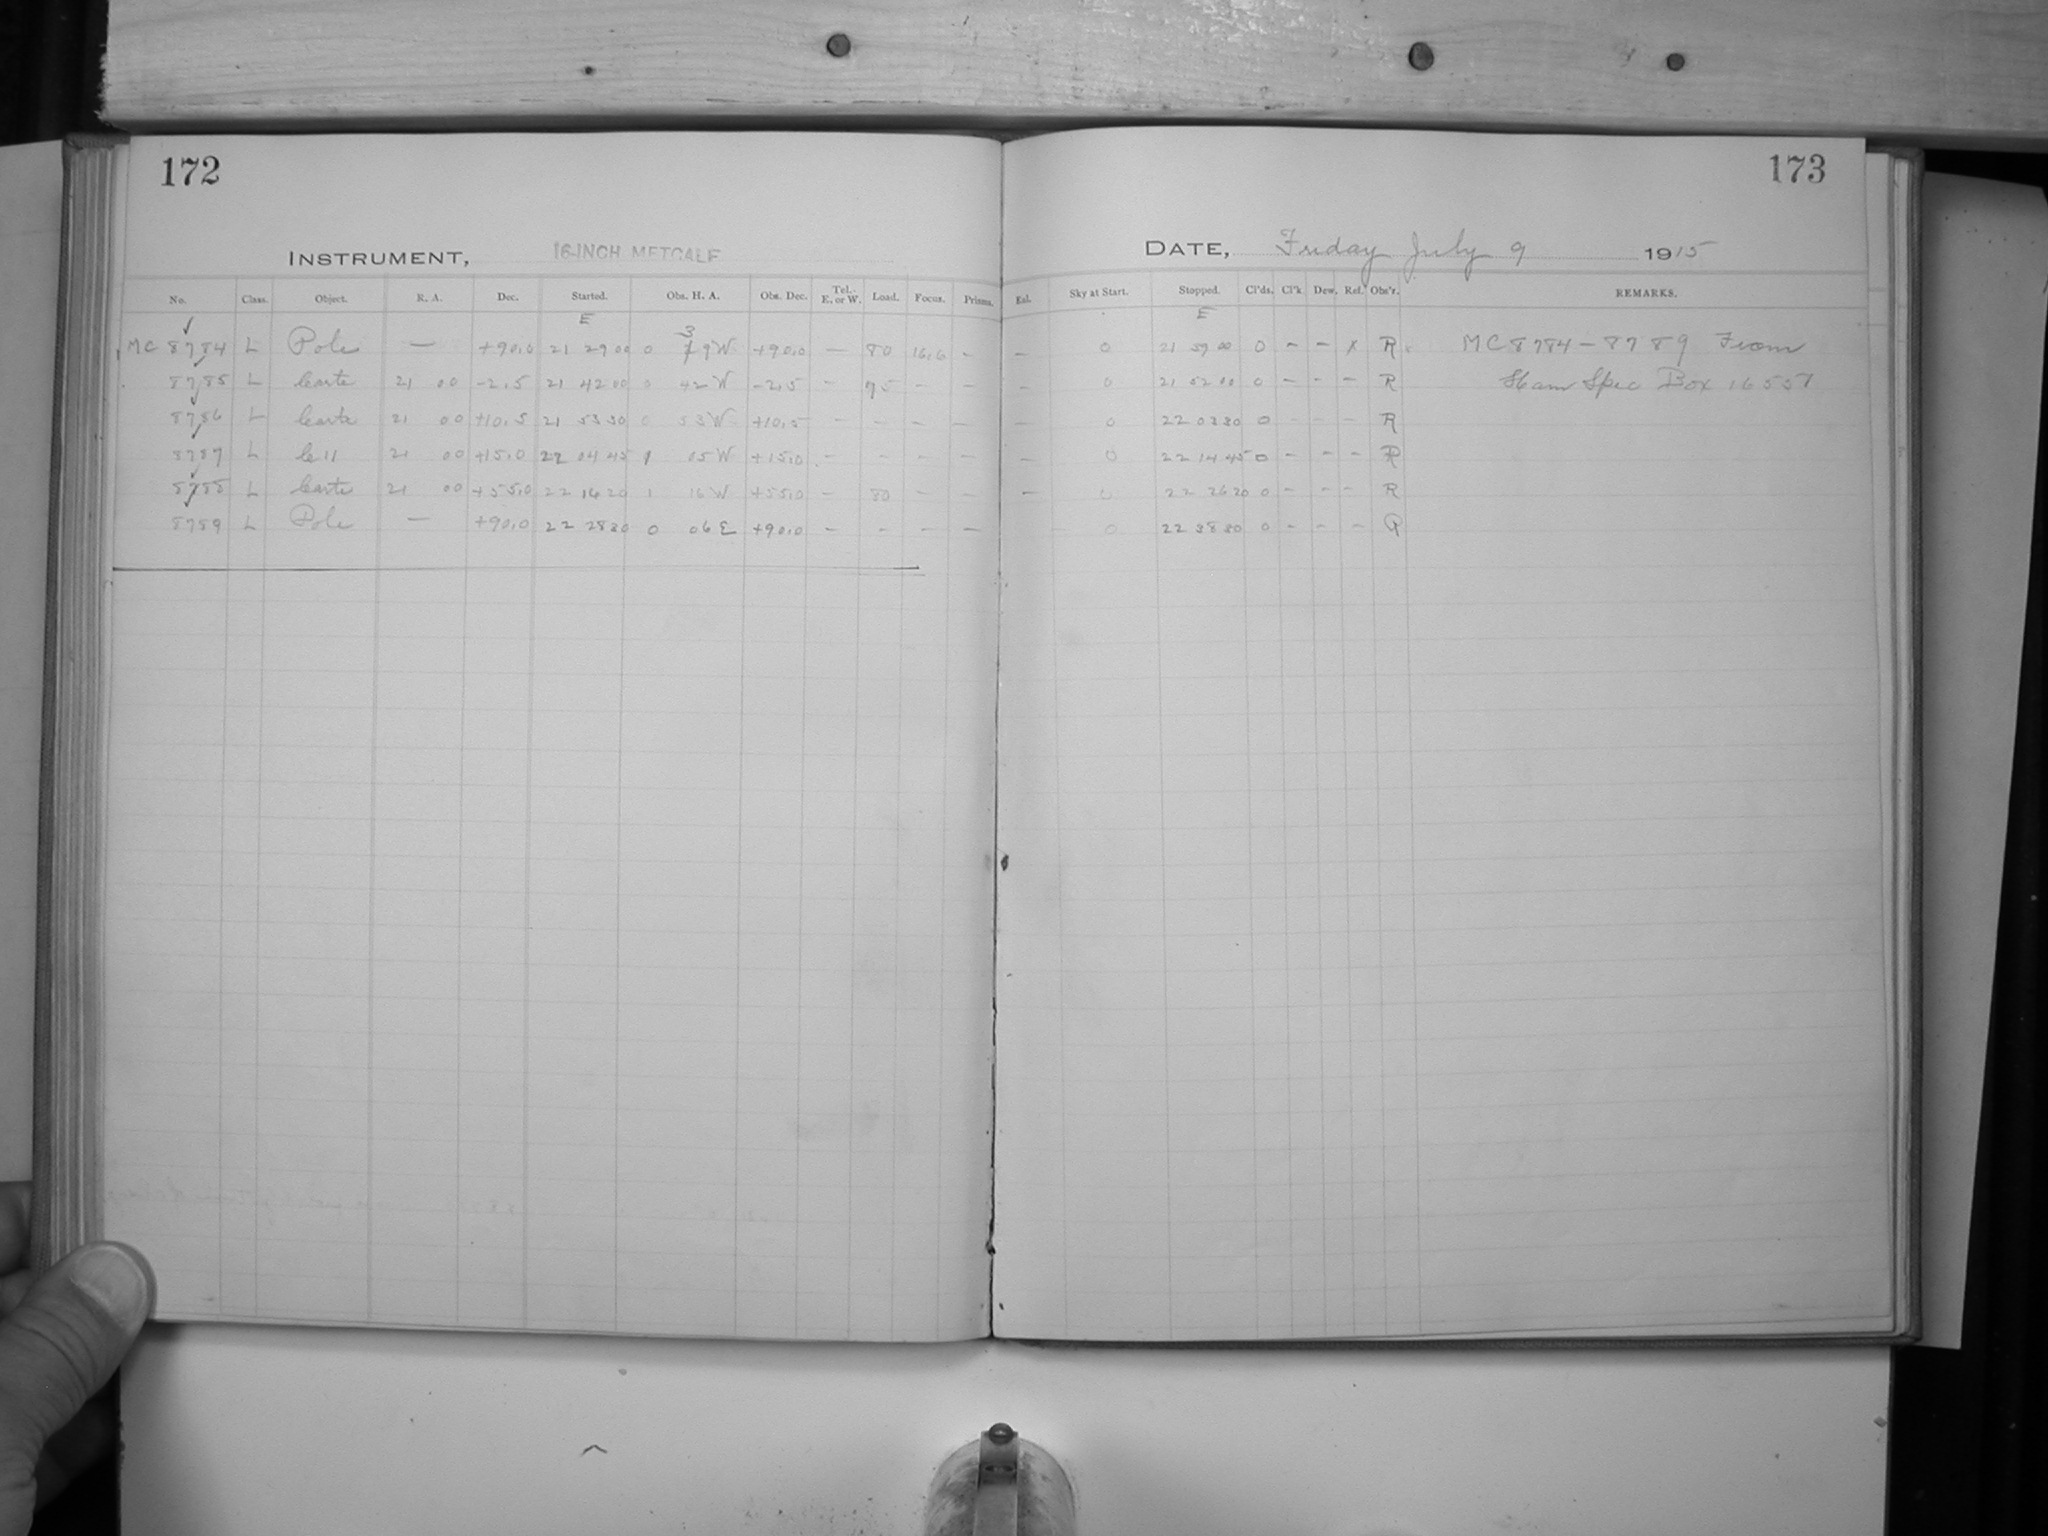 172
173
INSTRUMENT, 16-INCH METCALF
DATE, Friday July 9 1915
No. Class. Object. R. A. Dec. Started. Obs. H. A. Obs. Dec. Tel. E. or W. Load. Focus. Prisms. Exl. Sky at Start. Stopped. Cl'ds. Cl'k Dew. Ref. Obs'r. REMARKS.
E E
MC 8784 L Pole — +90,0 21 29 00 0 39W +90,0 — 80 16,6 - - 0 21 39 00 0 - - x R MC 8784-8789 From
8785 L Carte 21 00 -2,5 21 42 00 0 42 W -2,5 - 75 - - - 0 21 52 00 0 - - - R Spec Box 16557
8786 L Carte 21 00 +10,5 21 53 30 0 53 W +10,5 - - - - - 0 22 03 30 0 - - - R
8787 L C 11 21 00 +15,0 22 04 45 1 05 W +15,0 - - - - - 0 22 14 45 0 - - - R
8788 L Carte 21 00 +55,0 22 16 20 1 16 W +55,0 - 80 - - - 0 22 26 20 0 - - - R
8789 L Pole — +90,0 22 28 30 0 06 E +90,0 - - - - 0 22 38 30 0 - - - R